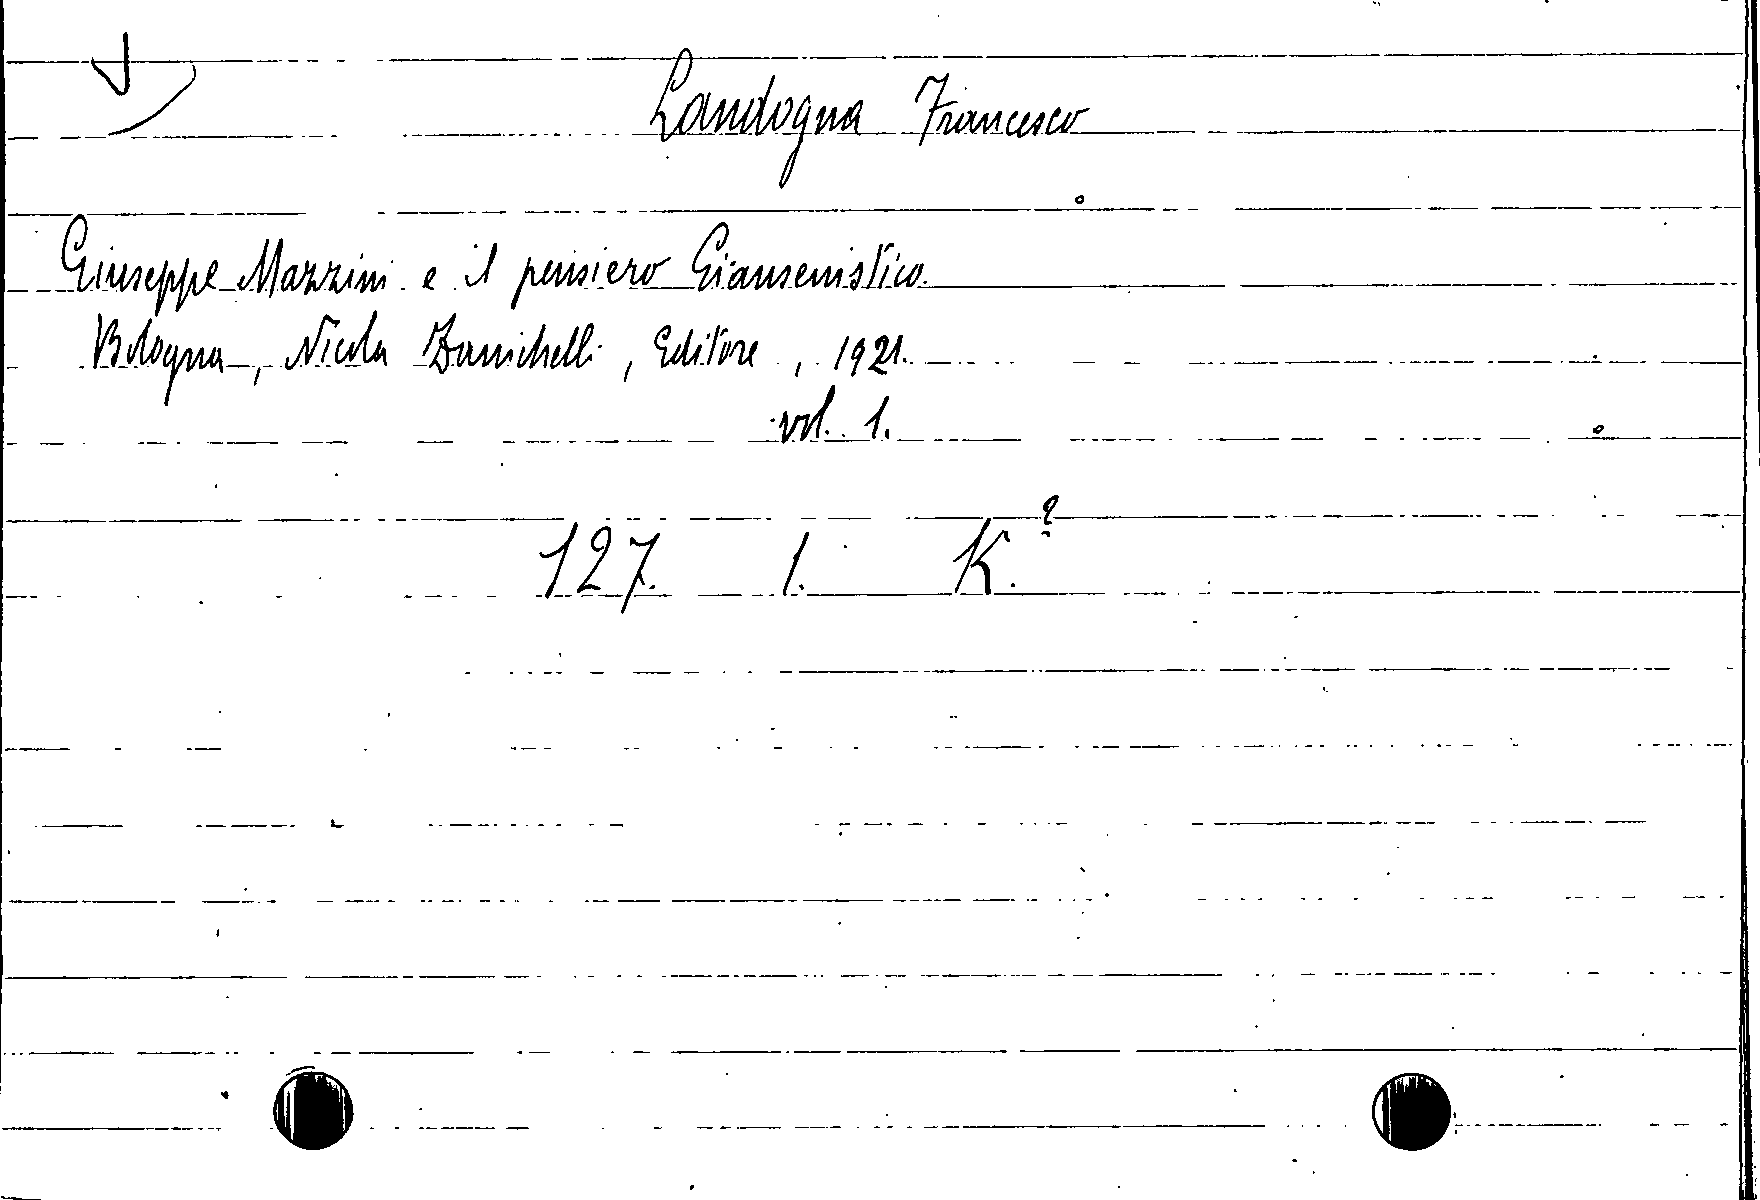 Landogna Francesco
Giuseppe Mazzini e il pensiero Giansenistico.
Bologna, Nicola Zanichelli, Editore, 1921.
vol. 1.
127. 1. K.²